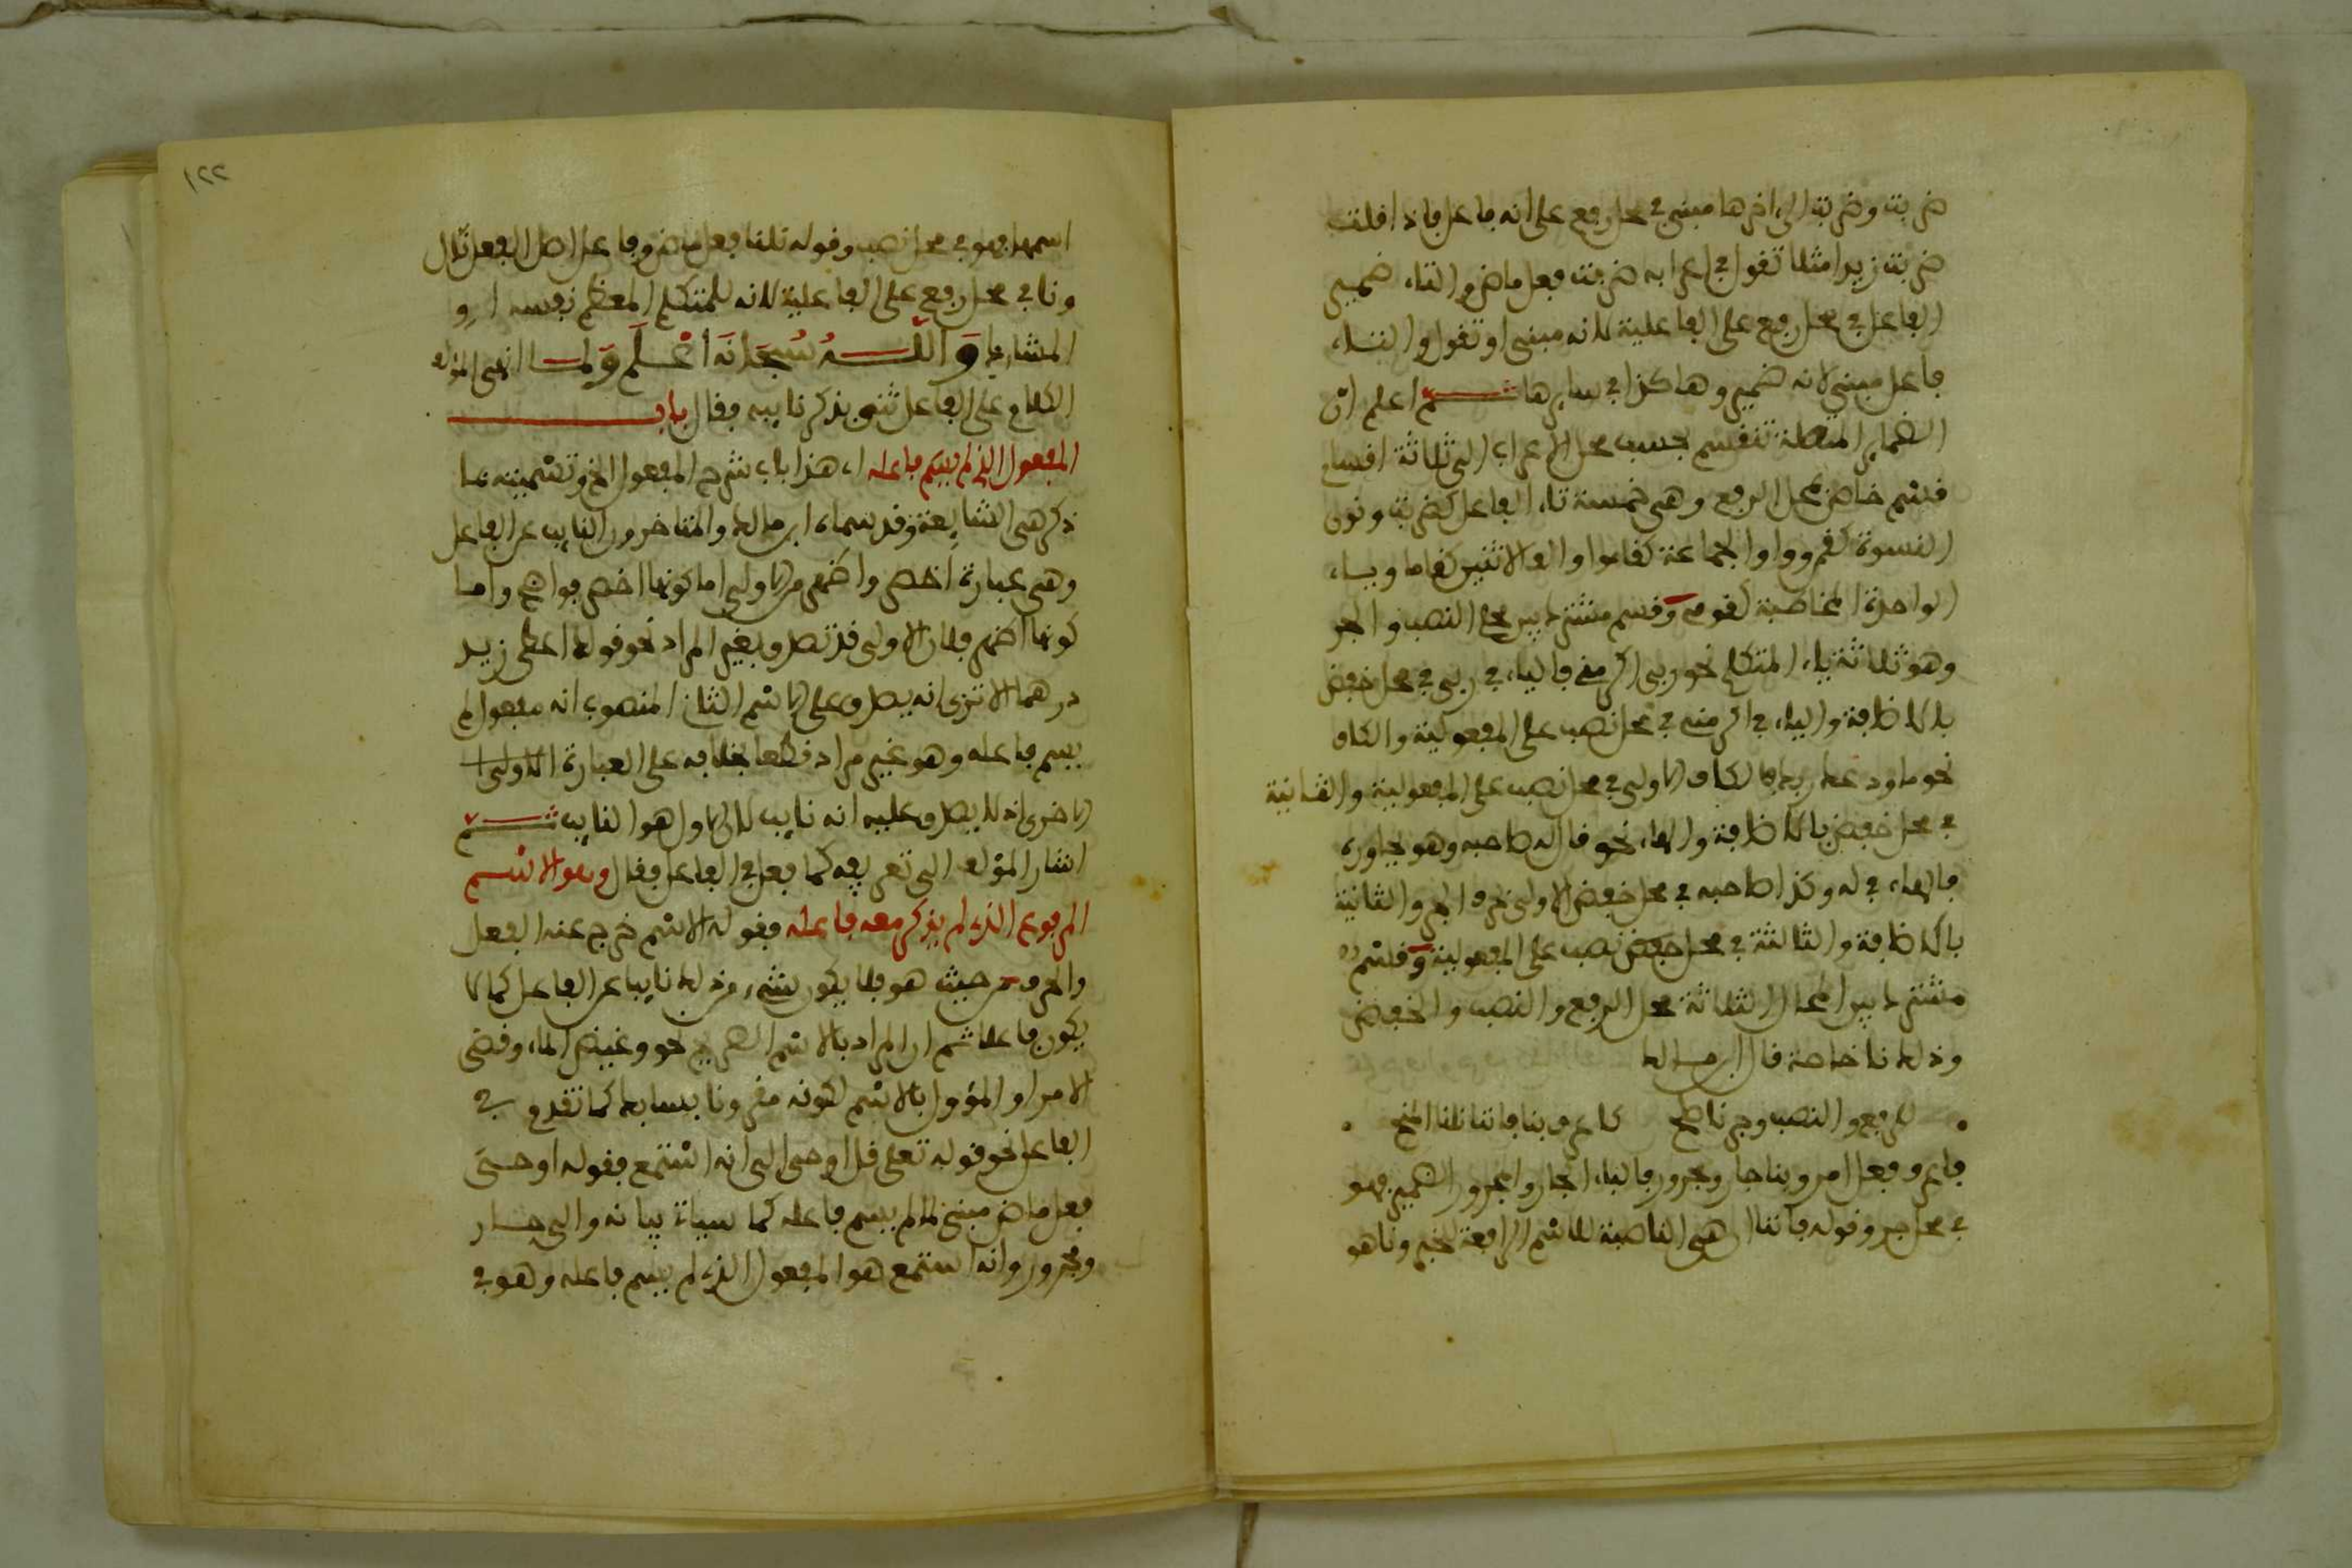 ضربت وضربت الى اخرها مبني في محل رفع على انه فاعل فاذا قلت
ضربت زيدا مثلا تقول في اعرابه ضربت فعل ماض والتاء ضمير
الفاعل في محل رفع على الفاعلية لانه مبني او تقول والتاء
فاعل مبني لانه ضمير وهاكذا في سايرها ثم اعلم ان
الضماير المتصلة تنقسم بحسب محل الاعراب الى ثلاثة اقسام
قسم خاص بمحل الرفع وهي خمسة تاء الفاعل كضربت ونون
النسوة كقمن وواو الجماعة كقاموا والف الاثنين كقاما وياء
الواحدة المخاطبة كقومي وقسم مشترك بين محل النصب والجر
وهو ثلاثة ياء المتكلم نحو ربي اكرمني فالياء في ربي في محل خفض
بالاضافة والياء في اكرمني في محل نصب على المفعولية والكاف
نحو ما ودعك ربك فالكاف الاولى في محل نصب على المفعولية والثانية
في محل خفض بالاضافة والهاء نحو قال له صاحبه وهو يحاوره
فالهاء في له وكذا صاحبه في محل خفض الاولى بحرف الجر والثانية
بالاضافة والثالثة في محل نصب على المفعولية وقسم
مشترك بين المحال الثلاثة محل الرفع والنصب والخفض
وذلك نا خاصة قال ابن مالك
للرفع والنصب وجر نا صلح كاعرف بنا فاننا نلنا المنح
فاعرف فعل امر وبنا جار ومجرور فالباء الجار والمجرور الضمير فهو
في محل جر وقوله فاننا ان هي الناصبة للاسم الرافعة للخبر ونا هو
١٢٢
اسمها فهو في محل نصب وقوله نلنا فعل ماض وفاعل اصل الفعل نال
ونا في محل رفع على الفاعلية لانه للمتكلم المعظم نفسه او
المشارك والله سبحانه اعلم ولما انهى المؤلف
الكلام على الفاعل ثنى بذكر نايبه فقال باب
المفعول الذي لم يسم فاعله اي هذا باب شرح المفعول الخ وتسميته بما
ذكر هي الشايعة وقد سماه ابن مالك والمتاخرون النايب عن الفاعل
وهي عبارة اخصر واضهر من الاولى اما كونها اخصر فواضح واما
كونها اضهر فلان الاولى قد تصدق بغير المراد نحو قولك اعطي زيد
درهما الا ترى انه يصدق على الاسم الثاني المنصوب انه مفعول لم
يسم فاعله وهو غير مراد قطعا بخلافه على العبارة
الاخرى اذ لا يصدق عليه انه نايب لان الاول هو النايب ثم
اشار المؤلف الى تعريفه كما فعل في الفاعل فقال وهو الاسم
المرفوع الذي لم يذكر معه فاعله فقوله الاسم خرج عنه الفعل
والحرف من حيث هو فلا يكون شيء من ذلك نايبا عن الفاعل كما لا
يكون فاعلا ثم ان المراد بالاسم الصريح نحو وغيض الماء وقضي
الامر او المؤول بالاسم لكونه مقرونا بسابك كما تقدم في
الفاعل نحو قوله تعلى قل اوحي الي انه استمع فقوله اوحي
فعل ماض مبني لما لم يسم فاعله كما سياتي بيانه والي جار
ومجرور وانه استمع هو المفعول الذي لم يسم فاعله وهو في